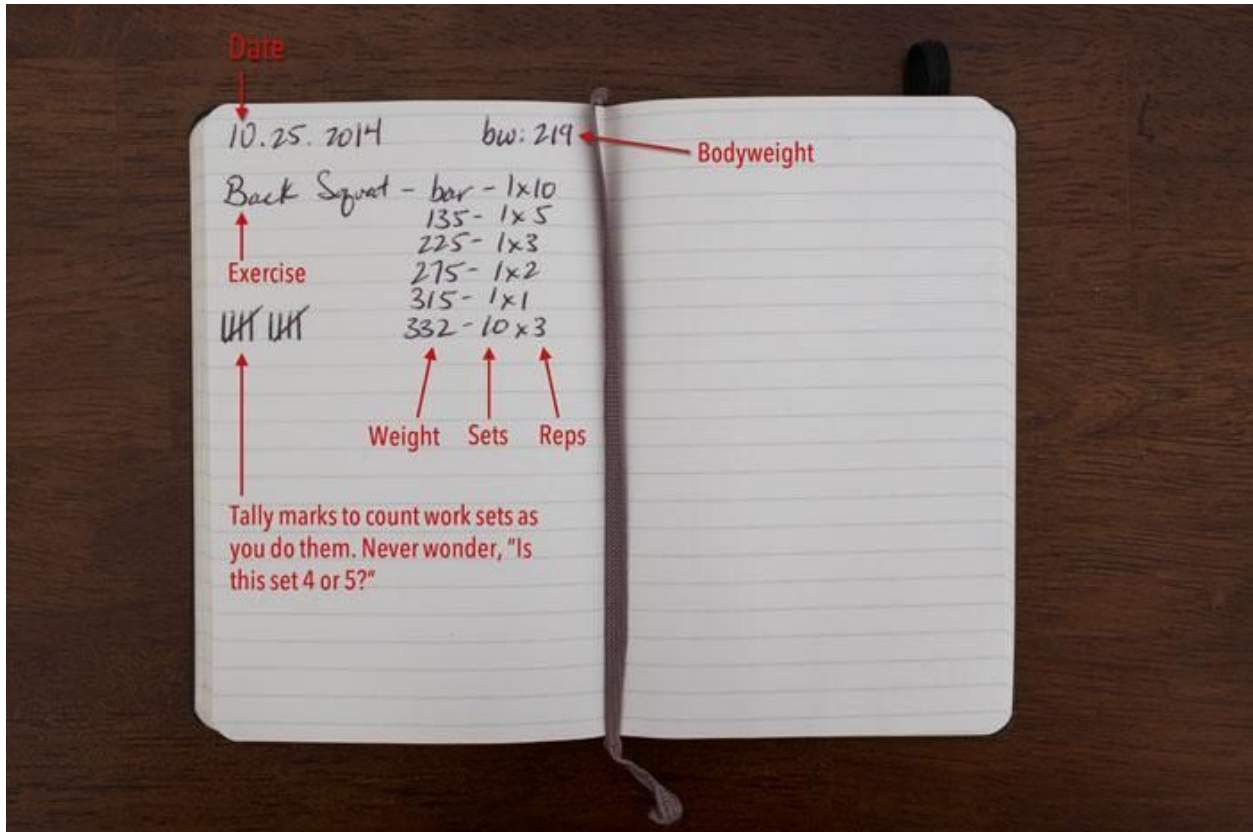 Date
10.25.2014 bw: 219
Bodyweight
Back Squat - bar - 1x10
135 - 1x5
225 - 1x3
Exercise
275 - 1x2
315 - 1x1
332 - 10x3
Weight Sets Reps
Tally marks to count work sets as
you do them. Never wonder, "Is
this set 4 or 5?"